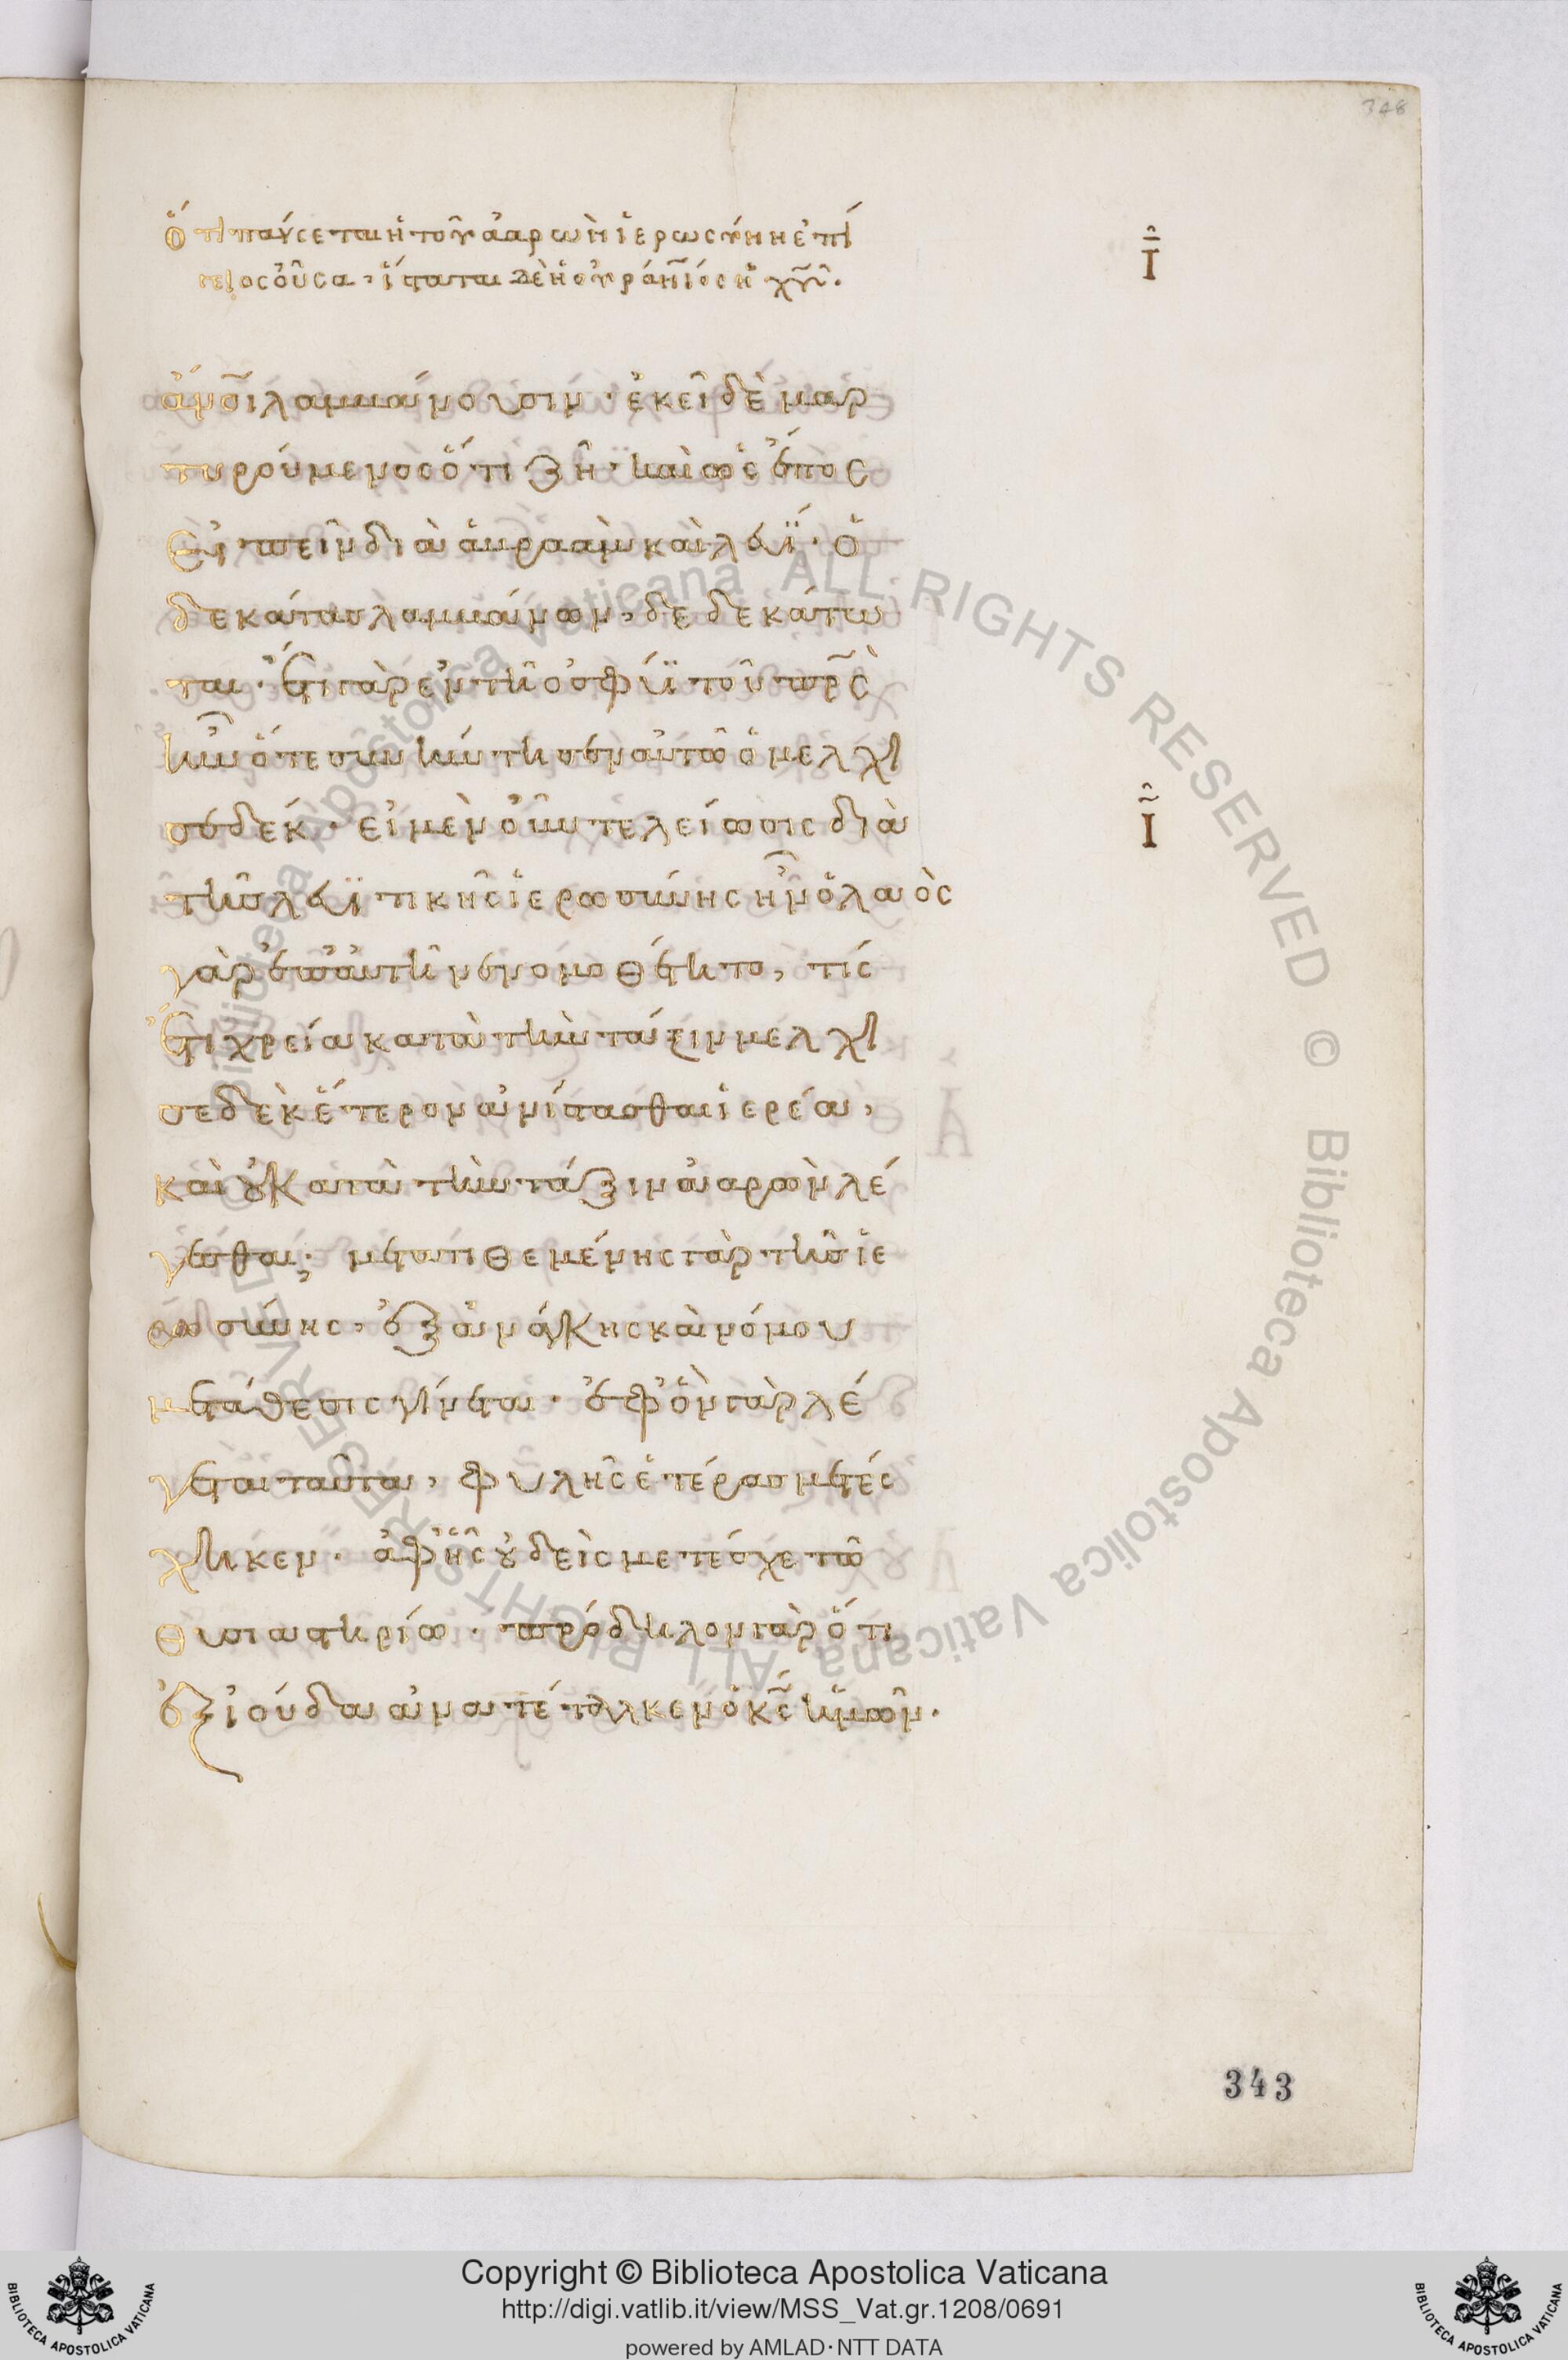 348
ὅτι παύσεται ἡ τοῦ ἀαρὼν ἱερωσύνη ἐπί
γειος οὖσα, ἵσταται δὲ ἡ οὐράνιος ἡ χυ.
Ῑ
ἀνοι λαμβάνουσιν · ἐκεῖ δὲ μαρ
τυρούμενος ὅτι ζῆ · καὶ ὡς ἔπος
εἰπεῖν διὰ ἀβραὰμ καὶ λευΐ · ὁ
δεκάτας λαμβάνων, δεδεκάτω
ται · ἔτι γὰρ ἐν τῆ ὀσφύϊ τοῦ πρς
ἦν ὅτε συνήντησεν αὐτῶ ὁ μελχι
σεδέκ · εἰ μὲν οὖν τελείωσις διὰ
Ῑ
τῆς λευϊτικῆς ἱερωσύνης ἦν ὁ λαὸς
γὰρ ἐπ αὐτῆ νενομοθέτητο, τίς
ἔτι χρεία κατὰ τὴν τάξιν μελχι
σεδὲκ ἕτερον ἀνίστασθαι ἱερέα,
καὶ οὐ κατὰ τὴν τάξιν ἀαρὼν λέ
γεσθαι; μετατιθεμένης γὰρ τῆς ἱε
ρωσύνης, ἐξ ἀνάγκης καὶ νόμου
μετάθεσις γίνεται · ἐφ ὃν γὰρ λέ
γεται ταῦτα, φυλῆς ἑτέρας μετές
χηκεν · ἀφ ἧς οὐδεὶς μετέσχε τῶ
θυσιαστηρίω · πρόδηλον γὰρ ὅτι
ἐξ ἰούδα ἀνατέταλκεν ὁ κς ἡμῶν.
343
Copyright © Biblioteca Apostolica Vaticana ALL RIGHTS RESERVED © Biblioteca Apostolica Vaticana ALL RIGHTS RESERVED
BIBLIOTECA APOSTOLICA VATICANA
Copyright © Biblioteca Apostolica Vaticana
http://digi.vatlib.it/view/MSS_Vat.gr.1208/0691
powered by AMLAD·NTT DATA
BIBLIOTECA APOSTOLICA VATICANA